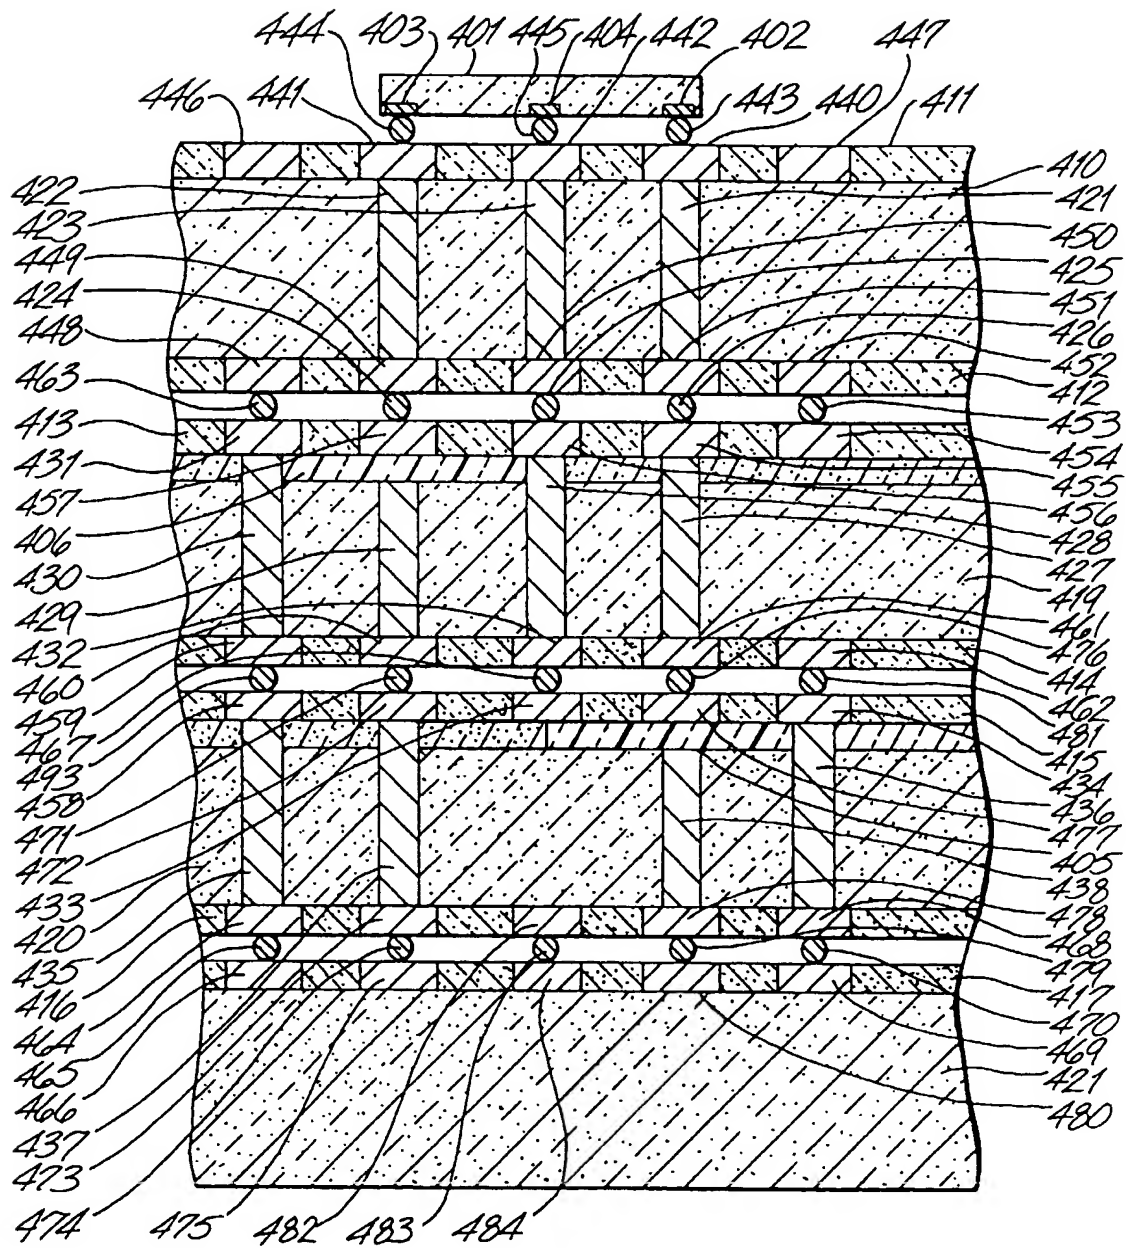 444 403 401 445 404 442 402 447
446 441 443 440 411
422
423
449
424
448
463
413
431
457
406
430
429
432
460
459
467
493
458
471
472
433
420
435
416
464
465
466
437
473
410
421
450
425
451
426
452
412
453
454
455
456
428
427
419
461
476
414
462
481
415
434
436
477
405
438
478
468
479
417
470
469
421
480
474 475 482 483 484